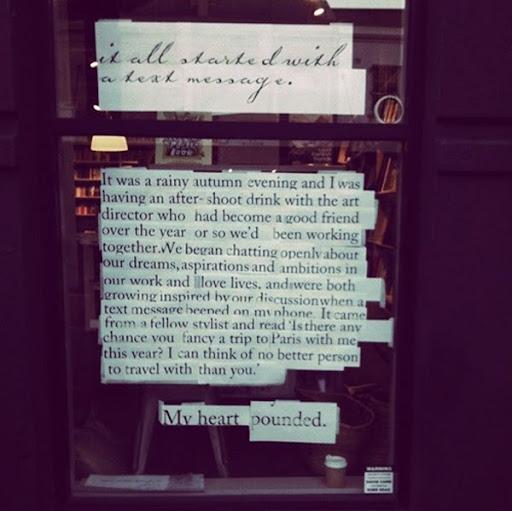 it all started with
a text message.
It was a rainy autumn evening and I was
having an after- shoot drink with the art
director who had become a good friend
over the year or so we'd been working
together.We began chatting openly about
our dreams,aspirations and ambitions in
our work and love lives, and were both
growing inspired by our discussion when a
text message beeped on my phone. It came
from a fellow stylist and read 'Is there any
chance you fancy a trip to Paris with me
this year? I can think of no better person
to travel with than you.'
My heart pounded.
WARNING